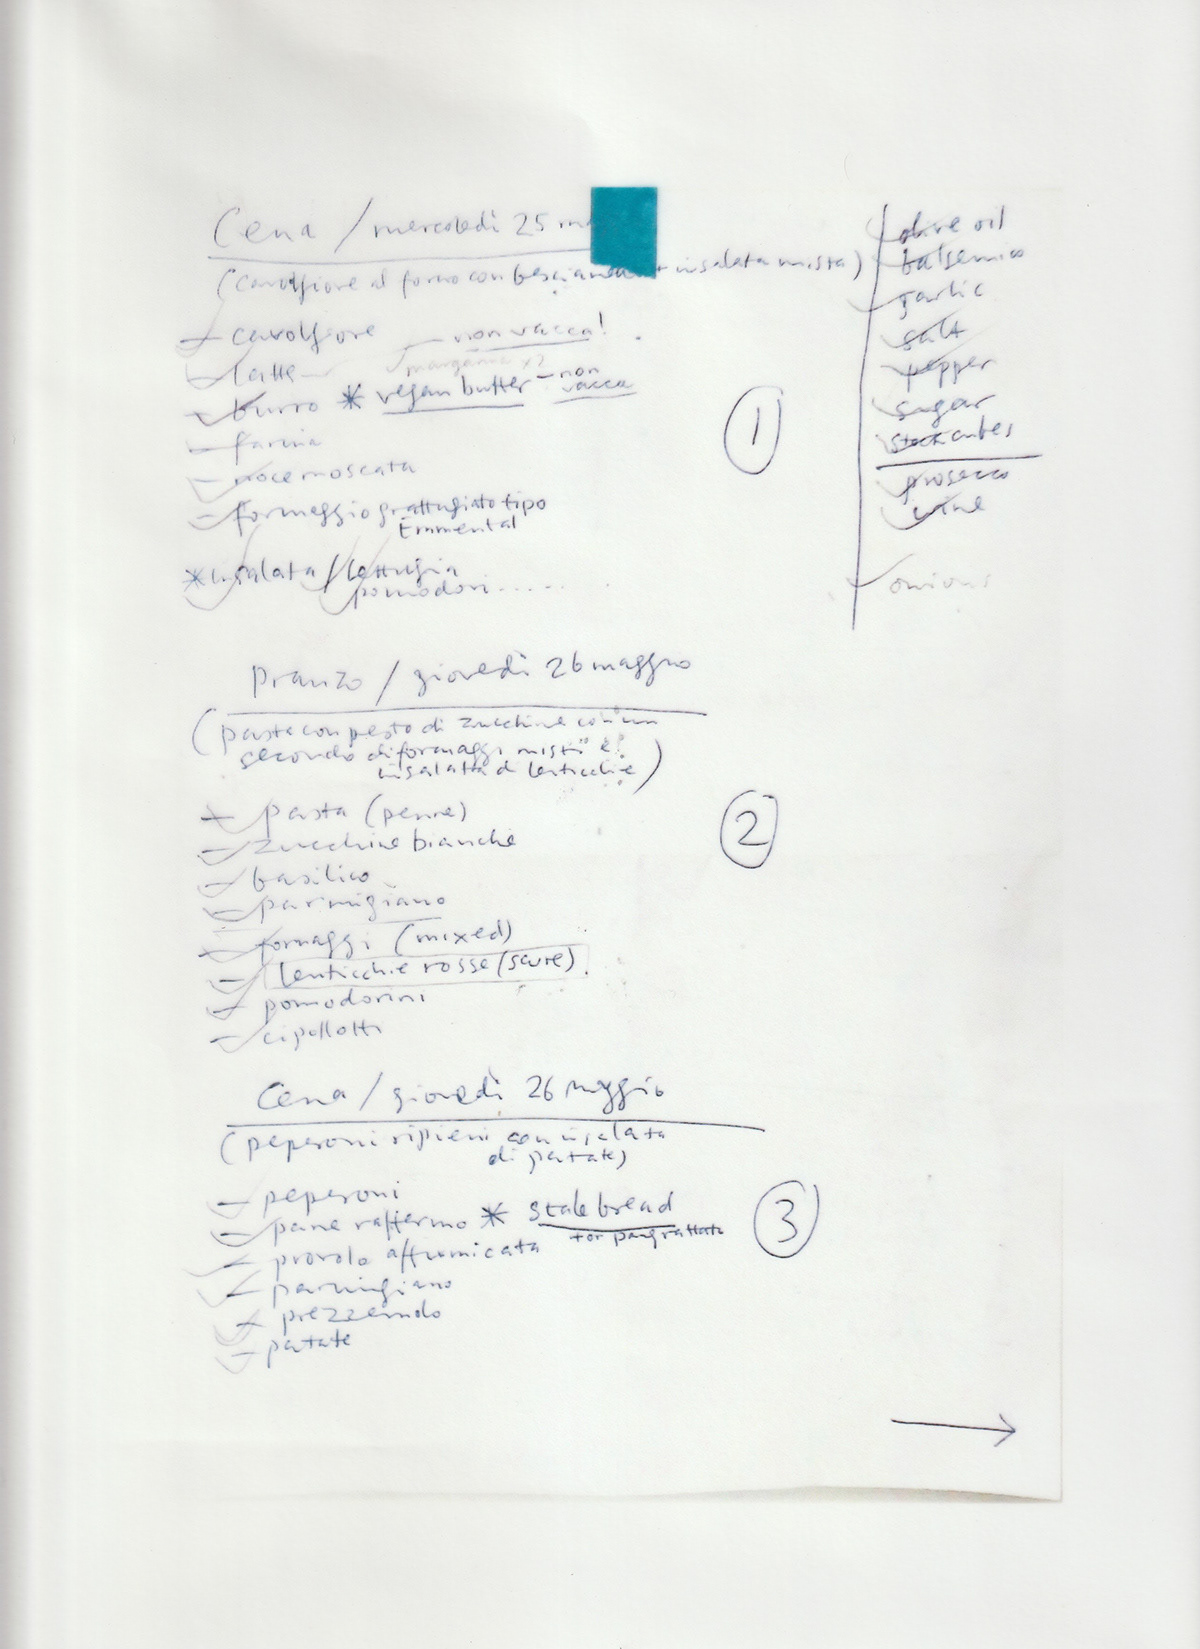 Cena / mercoledì 25
(cavolfiore al forno con besciamella + insalata mista)
– cavolfiore – non vacca!
– latte – margarina x2
– burro * vegan butter – non vacca
– farina
– noce moscata
– formaggio grattugiato tipo
Emmental
* insalata / lattugia
pomodori.....
①
olive oil
balsemico
garlic
salt
pepper
sugar
stock cubes
prosecco
wine
onions
Pranzo / giovedì 26 maggio
(pasta con pesto di zucchine con un
secondo di formaggi misti e
insalata di lenticchie)
– pasta (penne)
– zucchine bianche
– basilico
– parmigiano
– formaggi (mixed)
– lenticchie rosse (scure)
– pomodorini
– cipollotti
②
Cena / giovedì 26 maggio
(peperoni ripieni con insalata
di patate)
– peperoni
– pane raffermo * stale bread
for pangrattato
– provola affumicata
– parmigiano
– prezzemolo
– patate
③
→